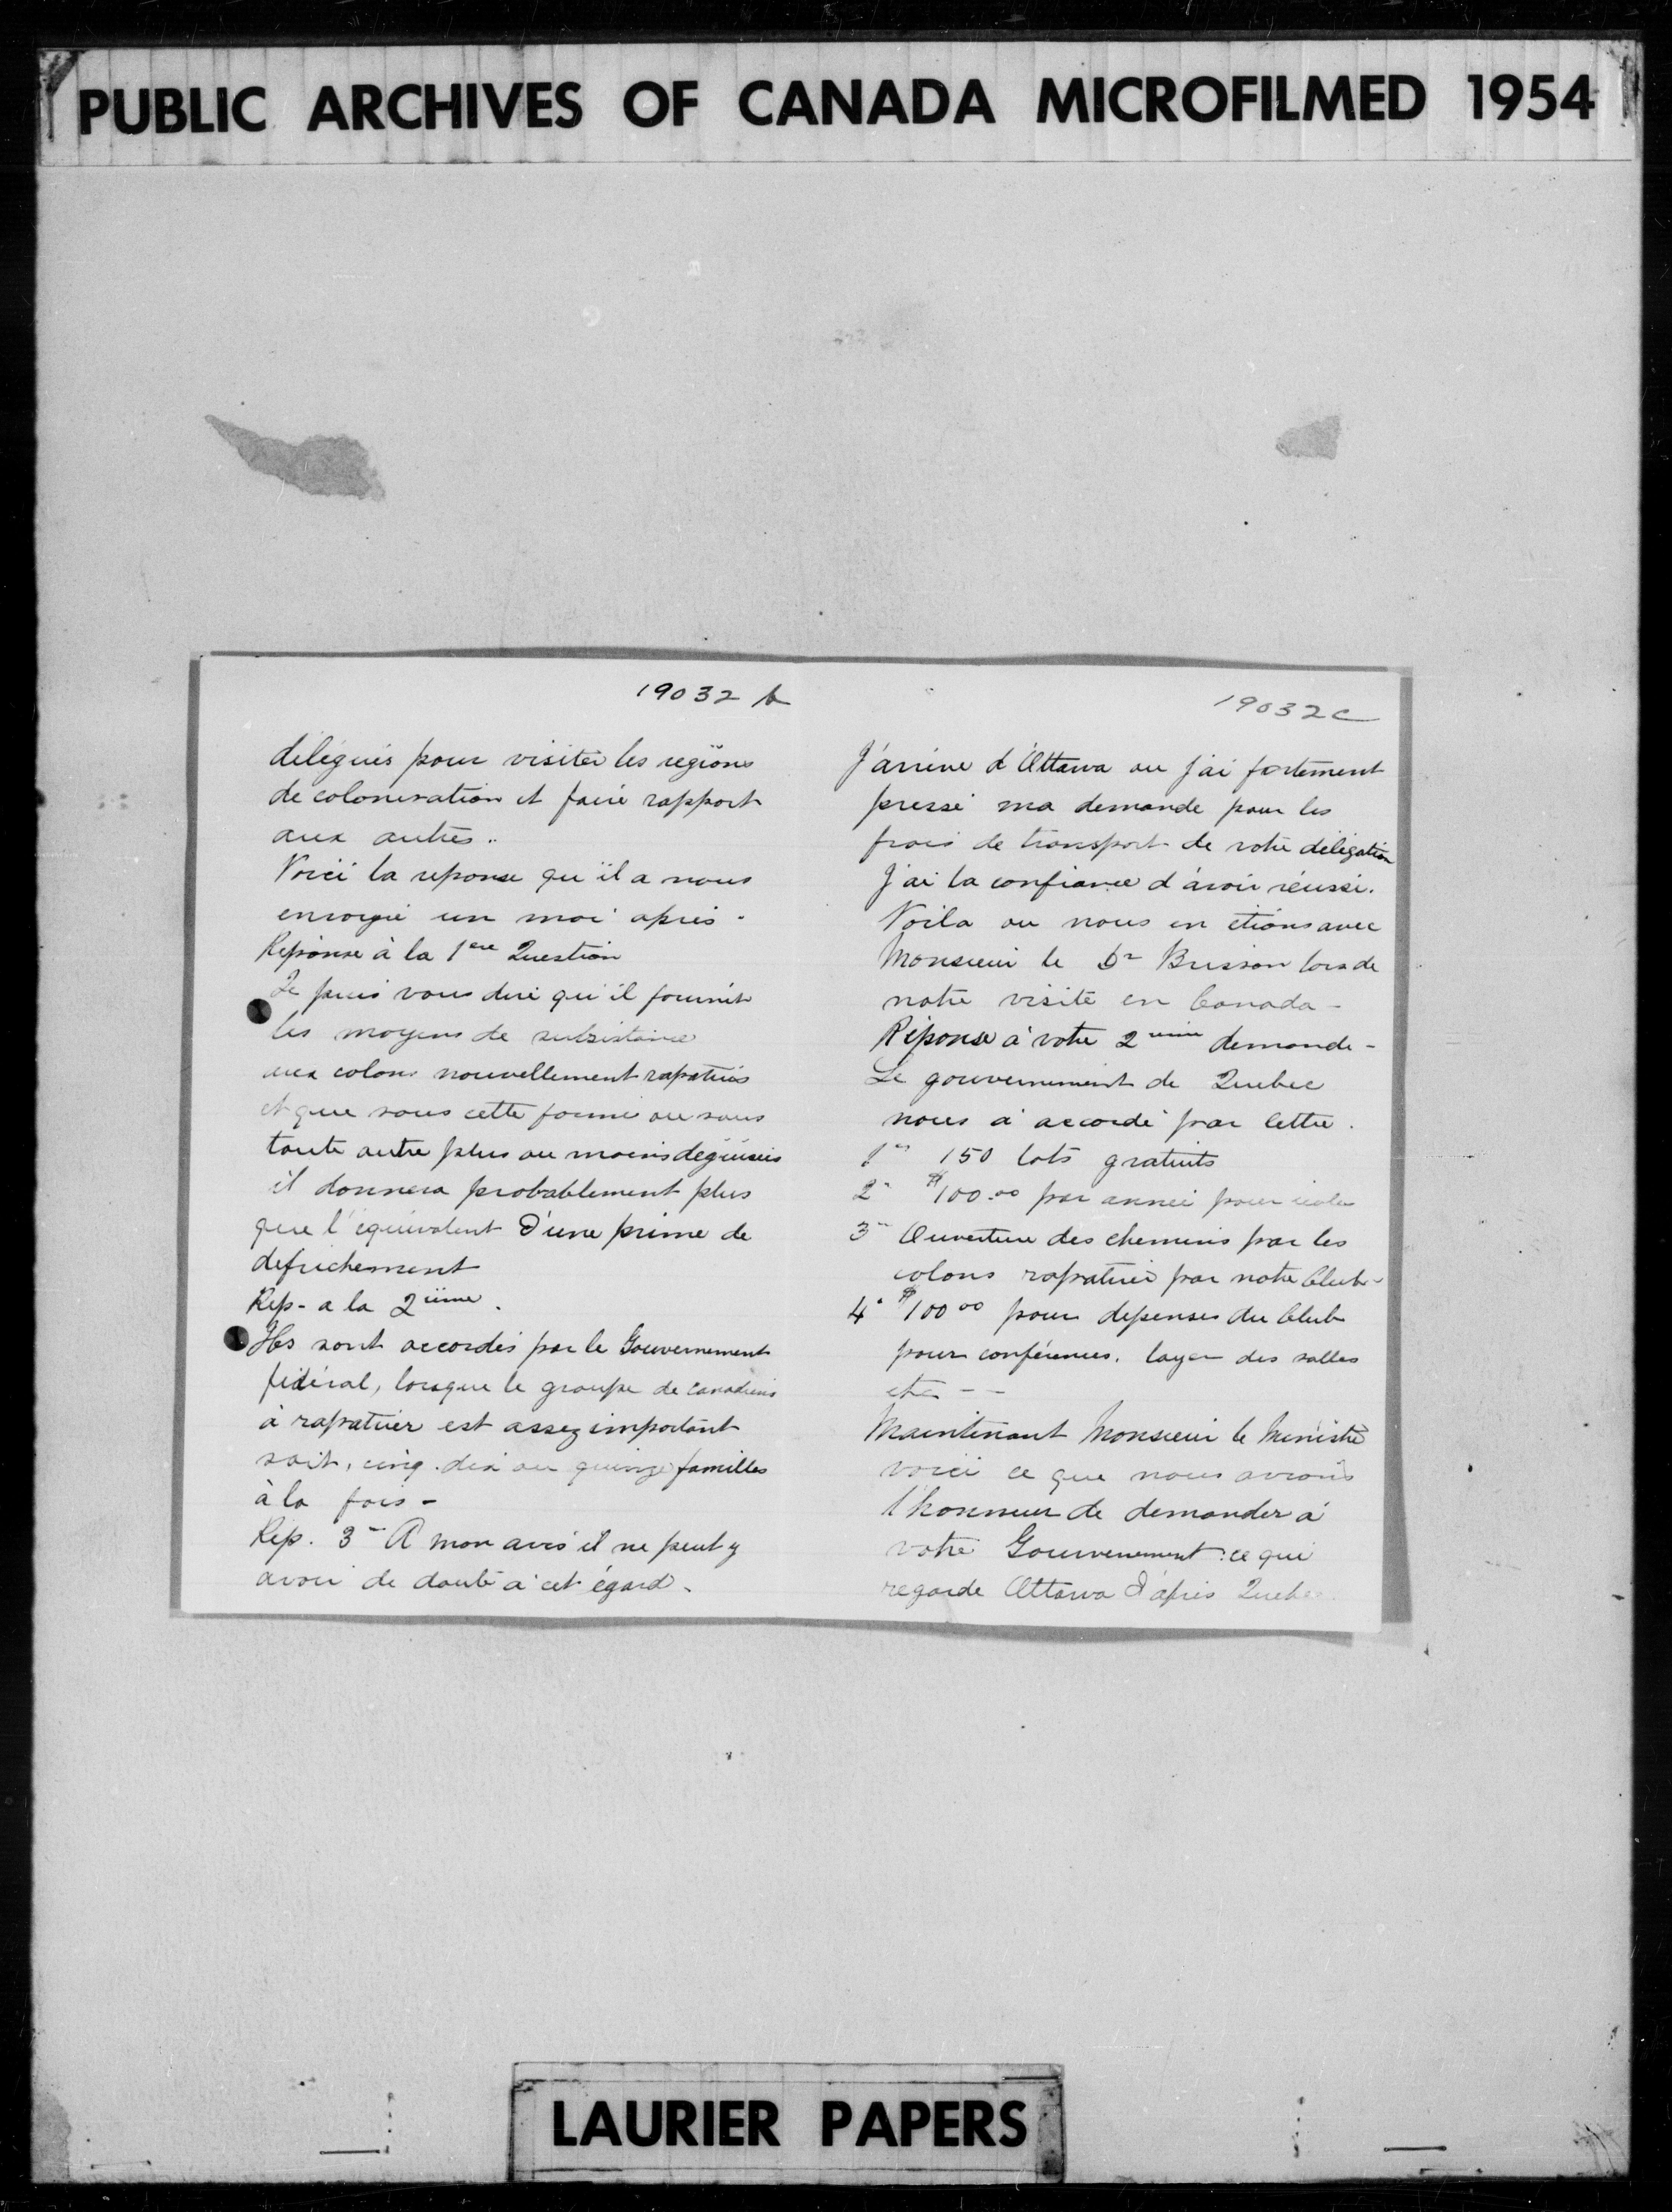 PUBLIC ARCHIVES OF CANADA MICROFILMED 1954
19032 b
délégués pour visiter les regions
de colonisation et faire rapport
aux autres..
Voici la reponse qu'il a nous
envoyé un moi après -
Reponse à la 1ere Question
Je puis vous dire qu'il fournit
les moyens de subsistance
aux colons nouvellement rapatriés
et que sous cette forme ou sous
toute autre plus ou moins deguisées
il donnera probablement plus
que l'équivalent d'une prime de
defrichement
Rep- a la 2ième.
Ils sont accordés par le Gouvernement
fédéral, lorsque le groupe de canadiens
à rapatrier est assez important
soit, cinq. dix ou quinze familles
à la fois -
Rép. 3- A mon avis il ne peut y
avoir de doute à cet égard.
19032c
J'arrive d'Ottawa ou j'ai fortement
pressé ma demande pour les
frais de transport de votre délégation
J'ai la confiance d'avoir réussi.
Voila ou nous en étions avec
Monsieur le Dr Brisson lors de
notre visite en Canada -
Réponse à votre 2ieme demande -
Le gouvernement de Quebec
nous a accordé par lettre.
1- 150 lots gratuits
2- $100.00 par année pour école
3- Ouverture des chemins par les
colons rapatrié par notre Club -
4- $100 00 pour depenses du Club
pour conférences. loyer des salles
etc - -
Maintenant Monsieur le Ministre
voici ce que nous avions
l'honneur de demander à
votre Gouvernement: ce qui
regarde Ottawa d'après Quebec.
LAURIER PAPERS